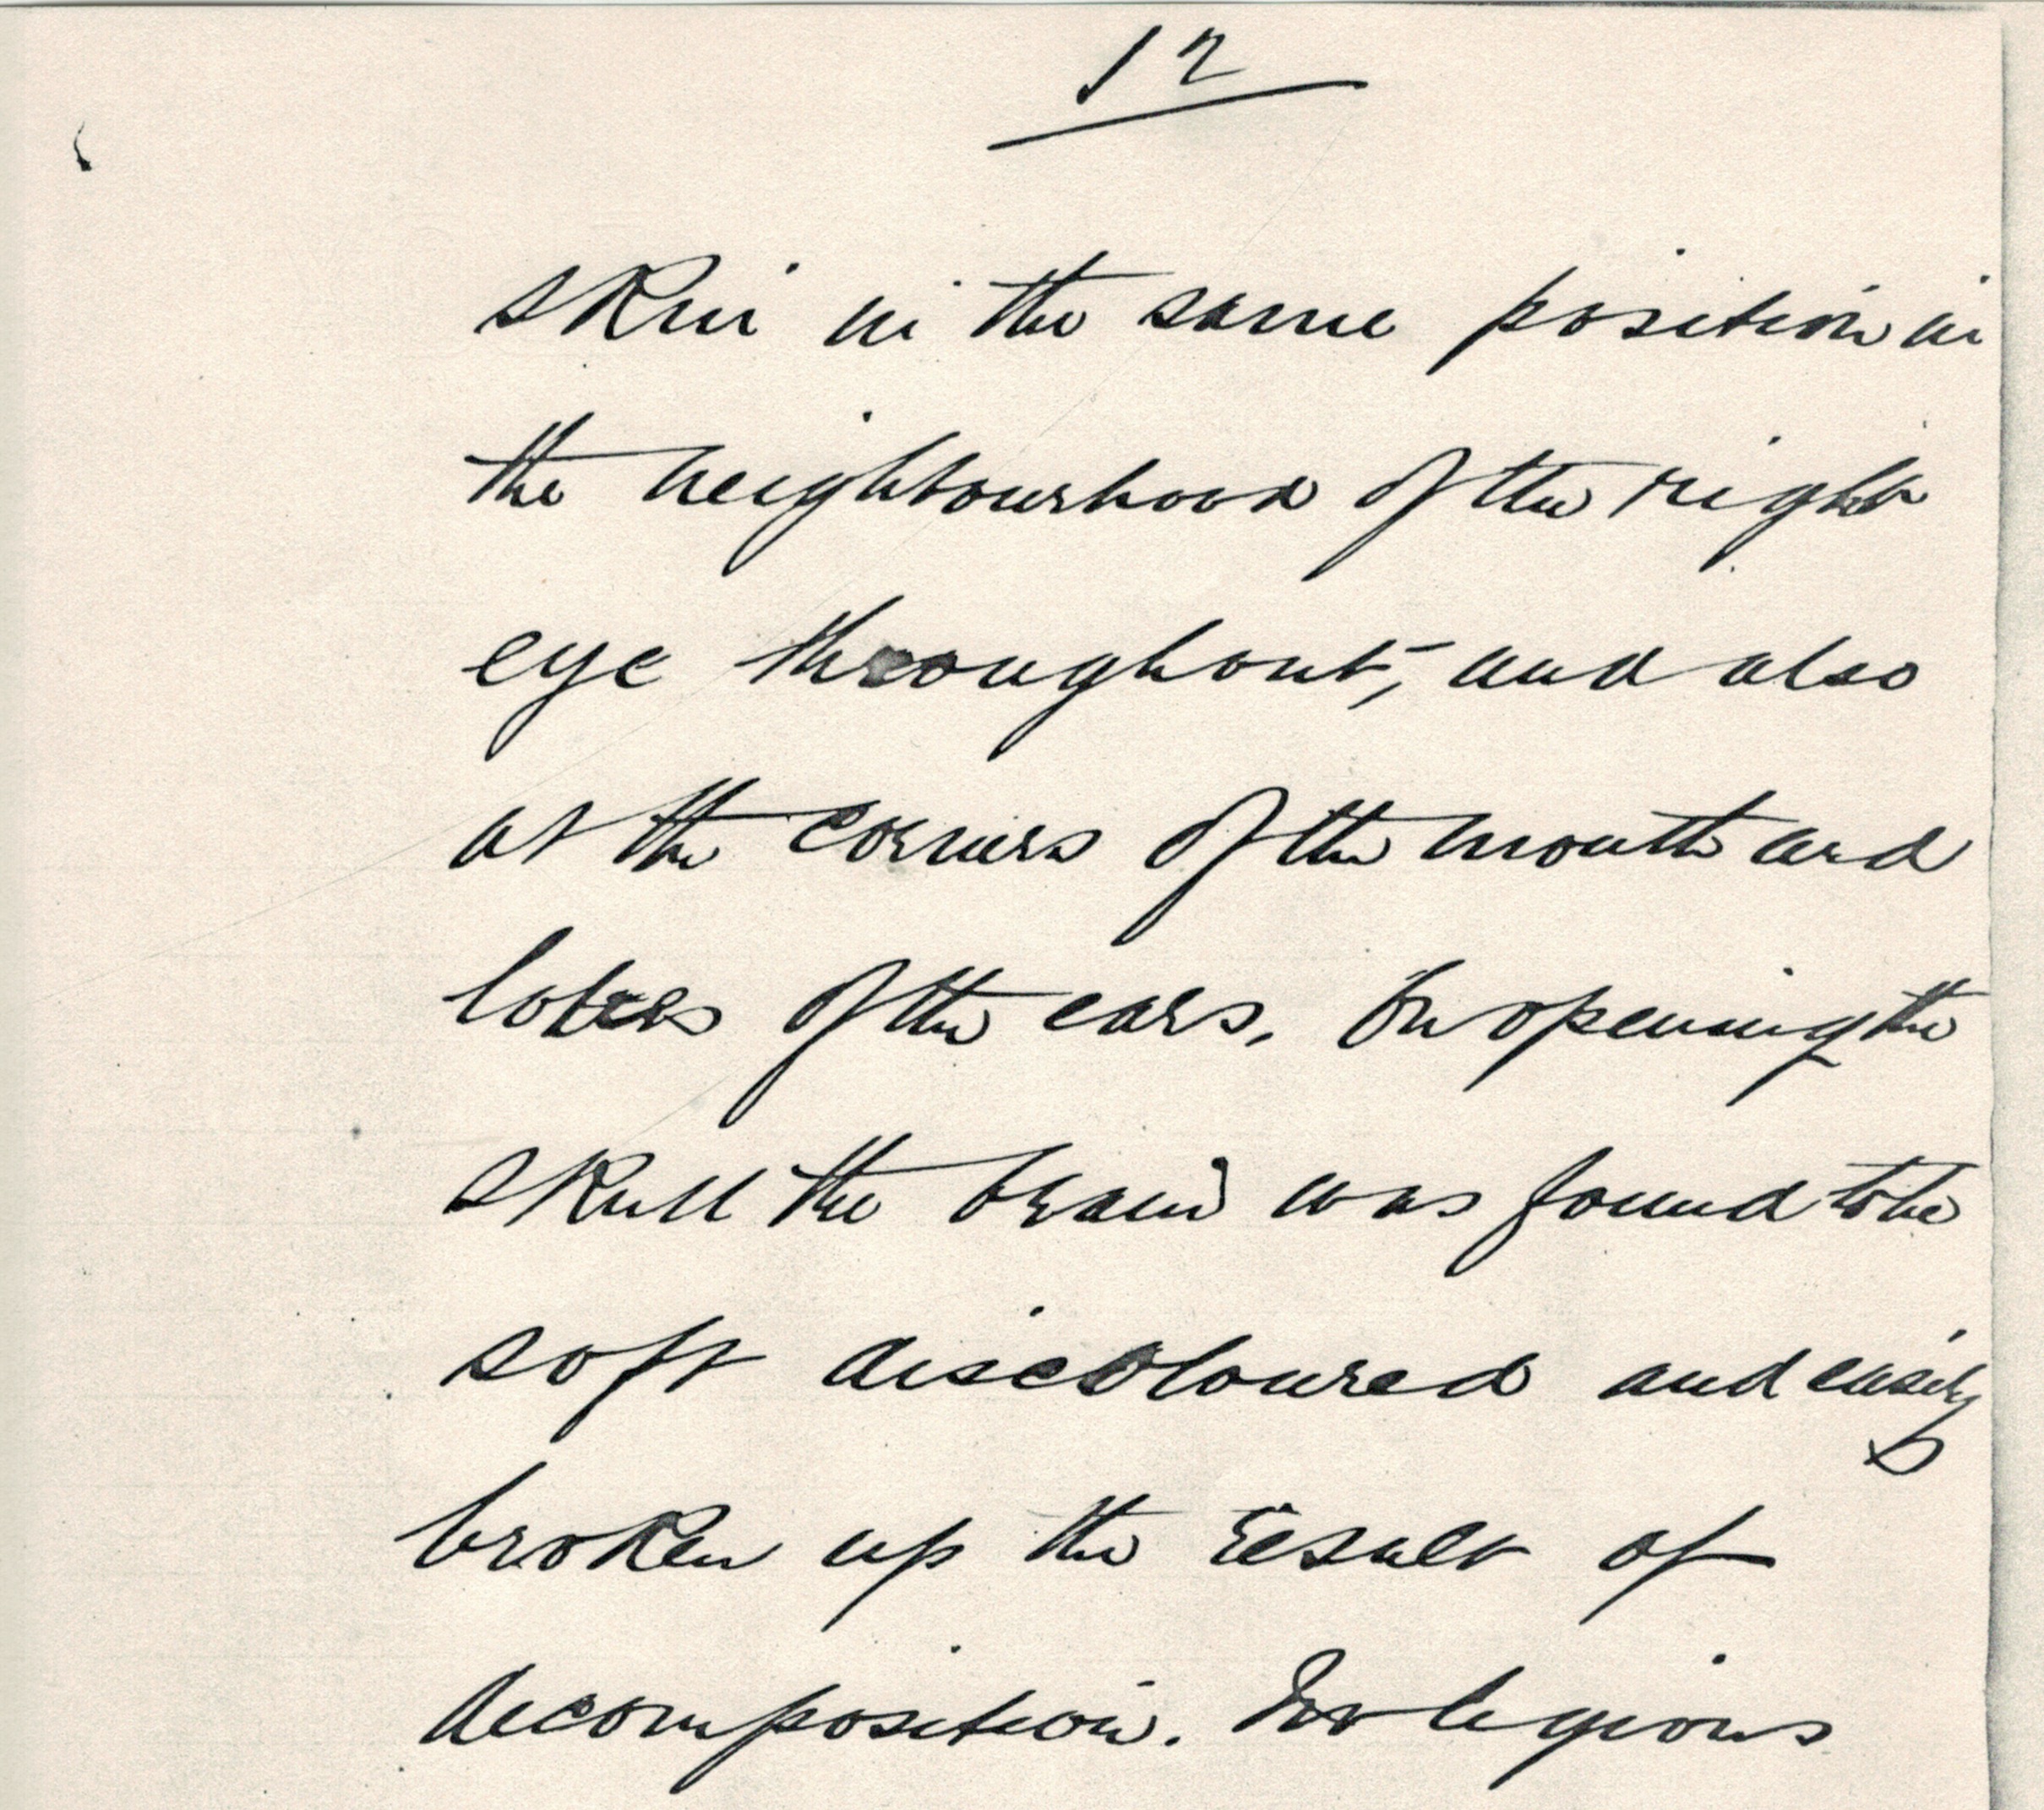 12
skin in the same position in
the neighbourhood of the right
eye throughout, and also
at the corners of the mouth and
lobes of the ears. On opening the
skull the brain was found to be
soft discoloured and easily
broken up the result of
decomposition. No legions